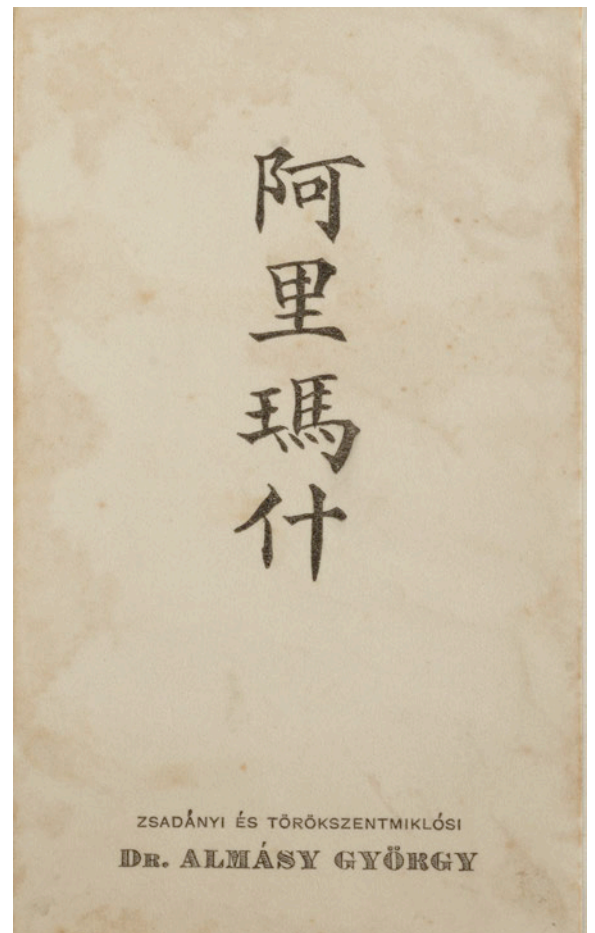 阿里瑪什
ZSADÁNYI ÉS TÖRÖKSZENTMIKLÓSI
DR. ALMÁSY GYÖRGY